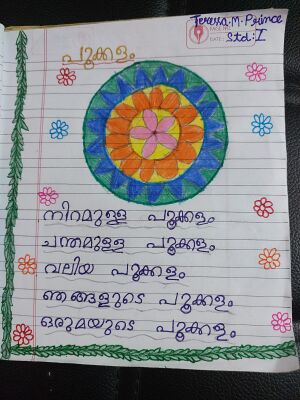 Teresa.M.Prince
Std:I
PAGE NO.
DATE:
പൂക്കളം
നിറമുള്ള പൂക്കളം
ചന്തമുള്ള പൂക്കളം
വലിയ പൂക്കളം
ഞങ്ങളുടെ പൂക്കളം
ഒരുമയുടെ പൂക്കളം